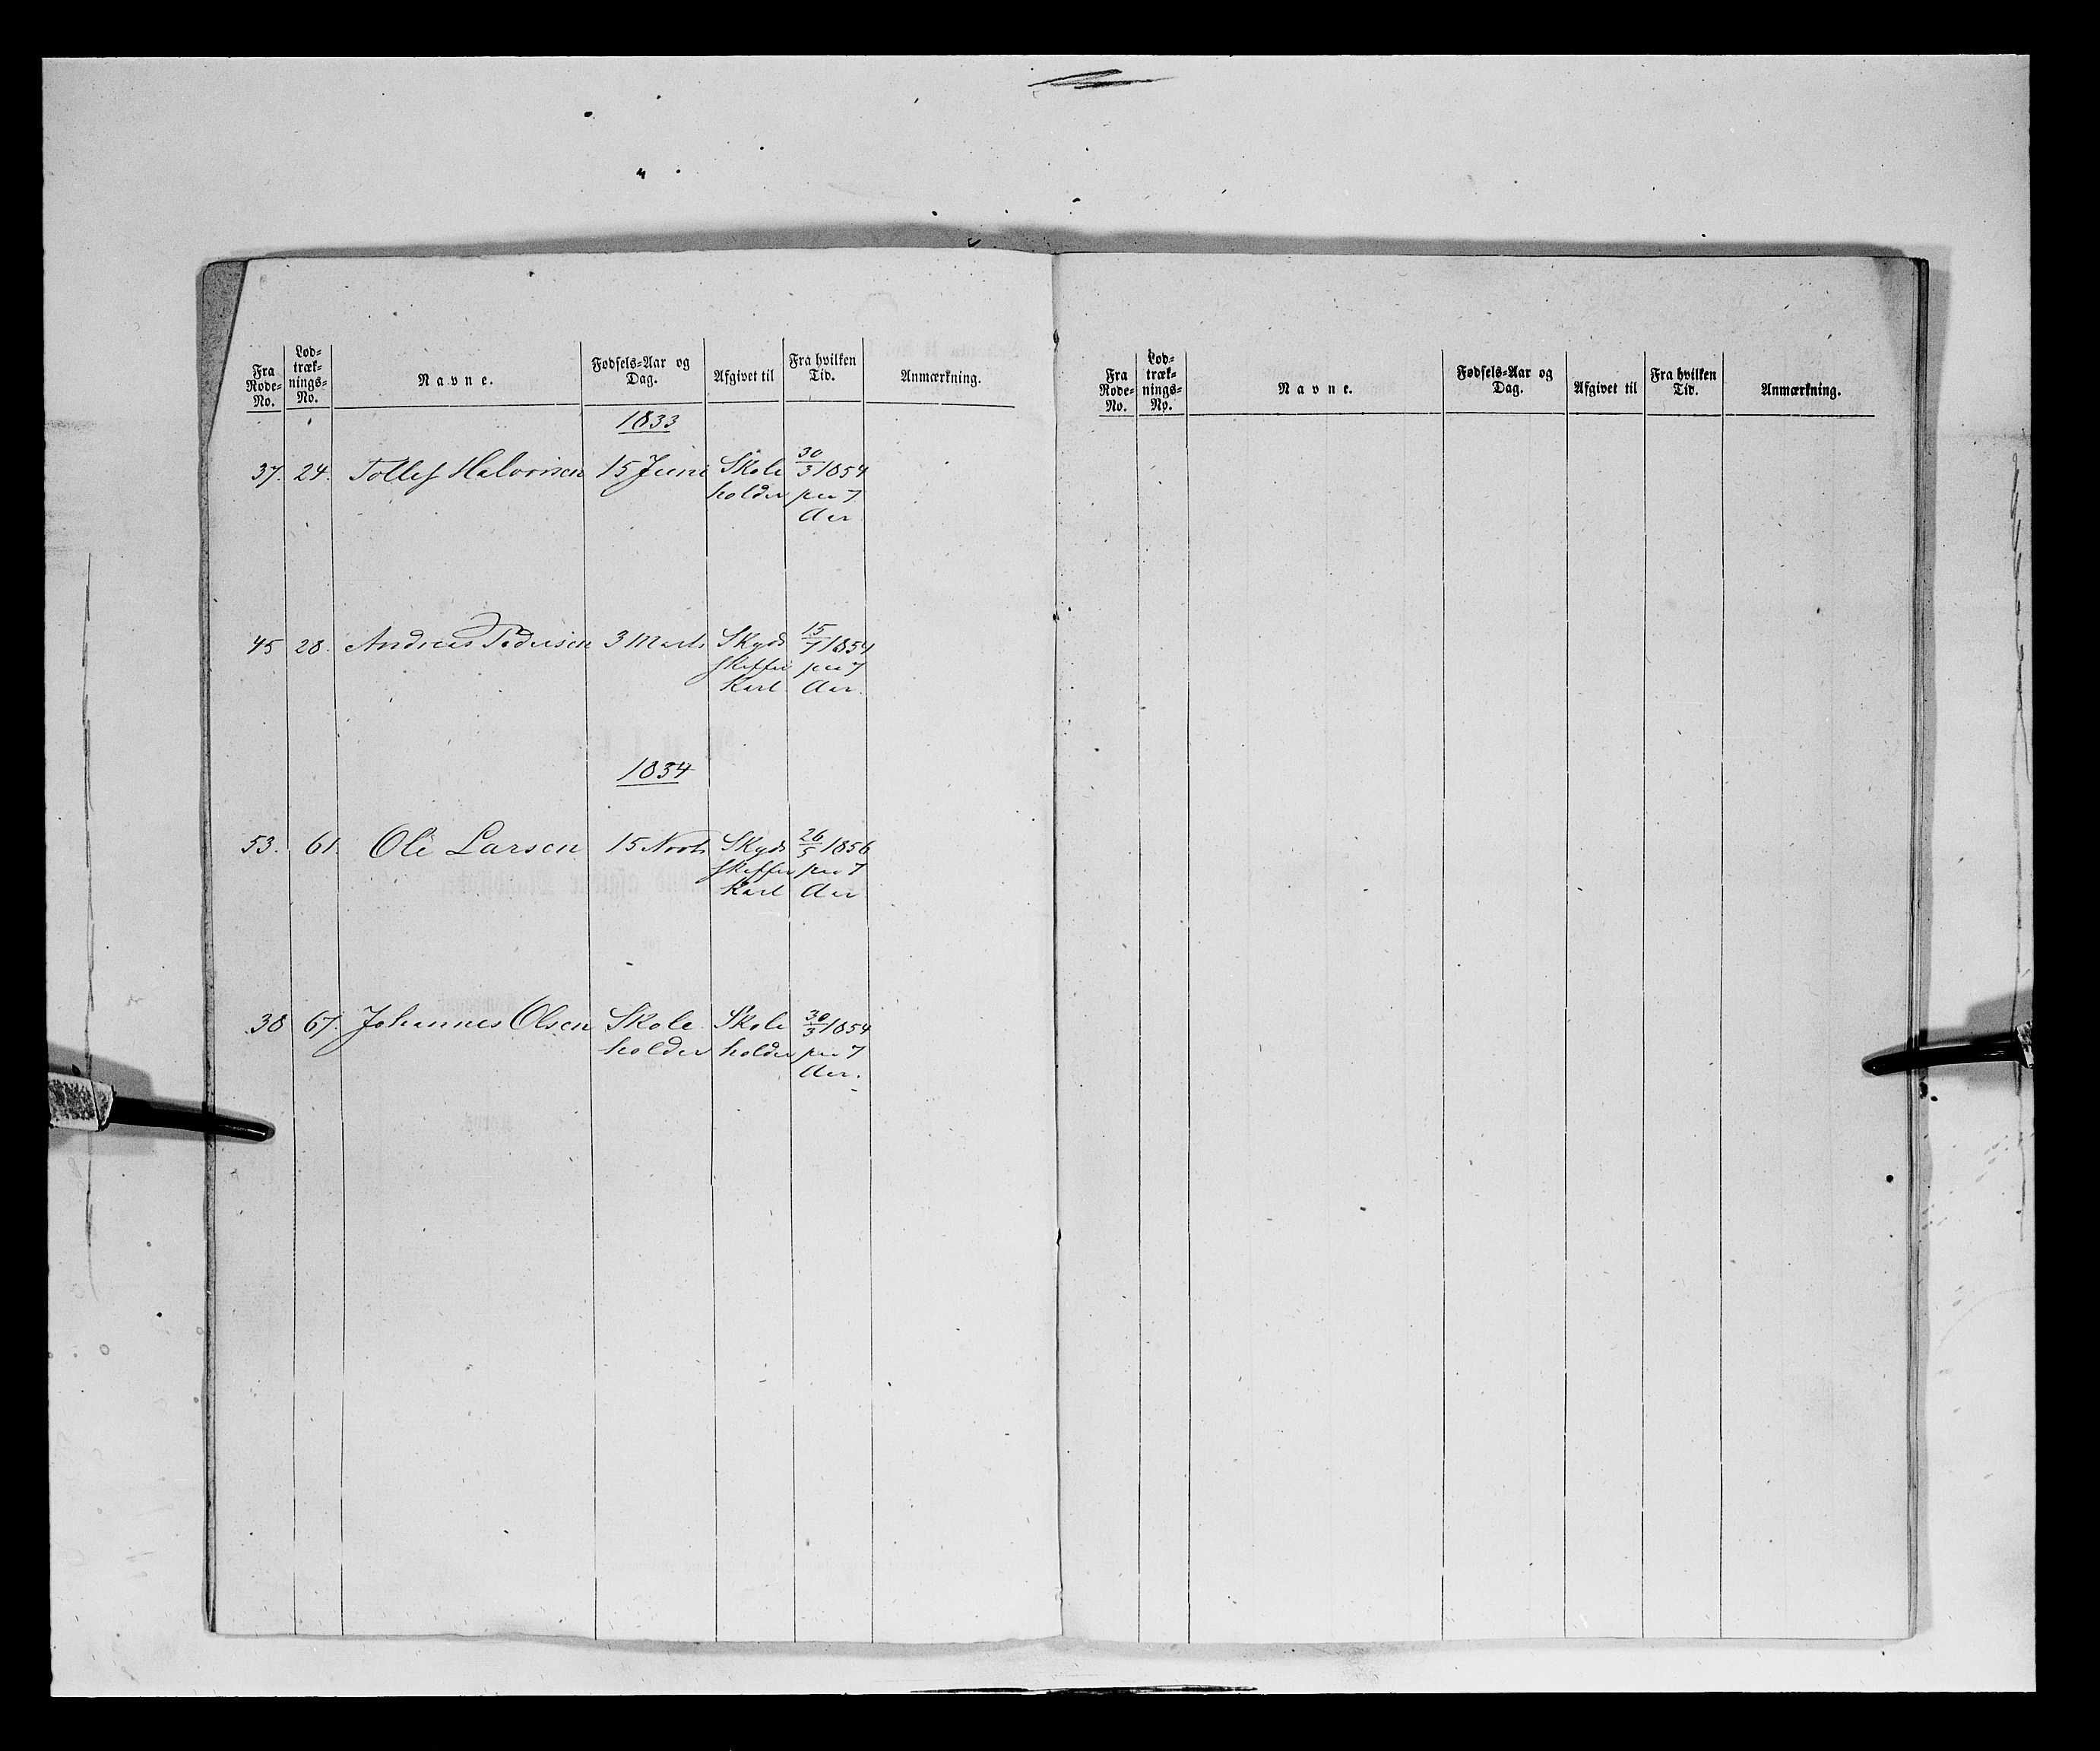 Fra Rode-No. Lod-træk-nings-No. Navne. Fødsels-Aar og Dag. Afgivet til Fra hvilken Tid. Anmærkning.
1833
37. 24. Tollef Halvorsen 15 Juni Skole 30/3 1854
holder paa 7
Aar
45 28. Andreas Pedersen 3 Marts Skyds 15/7 1854
skaffer paa 7
Karl Aar.
1834
53. 61. Ole Larsen 15 Novb Skyds 26/5 1856
skaffer paa 7
Karl Aar
38 67. Johannes Olsen Skole Skole 30/3 1854
holder holder paa 7
Aar.
Fra Rode-No. Lod-træk-nings-No. Navne. Fødsels-Aar og Dag. Afgivet til Fra hvilken Tid. Anmærkning.